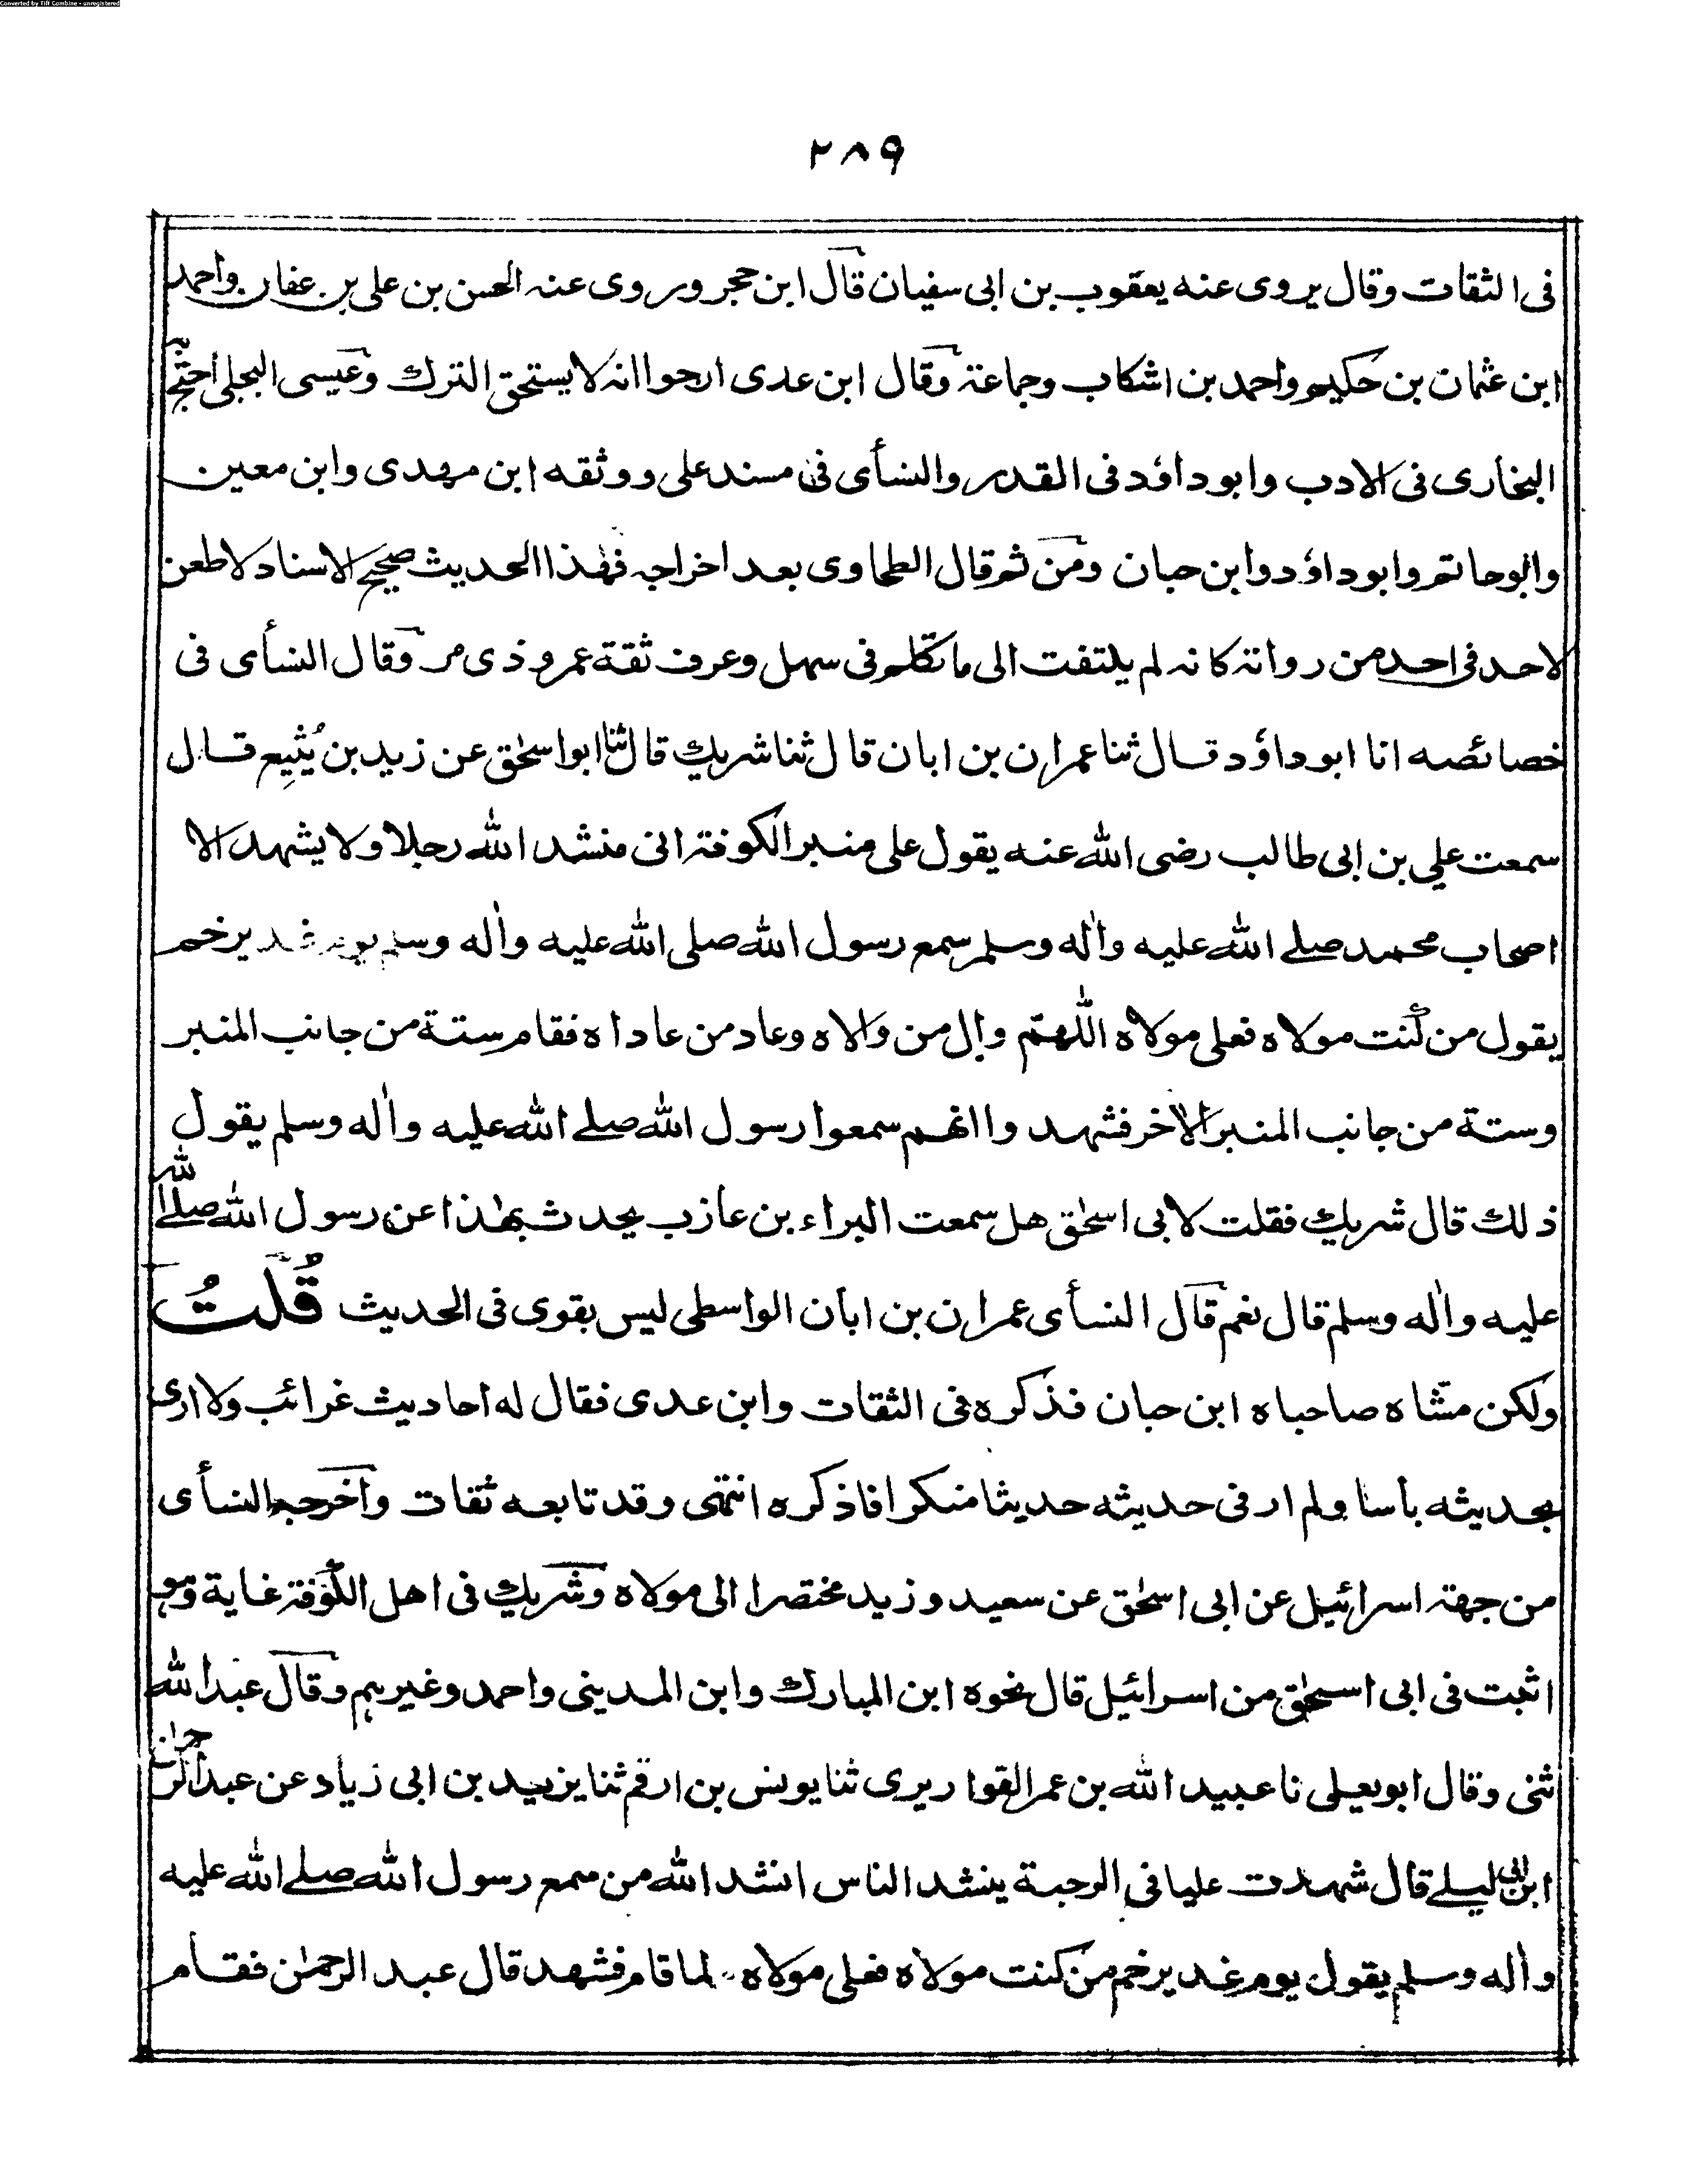 Converted by Tiff Combine - unregistered
٢٨٩
فی الثقات وقال یروی عنه یعقوب بن ابی سفیان قال ابن حجر وروی عنہ الحسن بن علی بن عفان واحمد
ابن عثمان بن حکیم واحمد بن اشکاب وجماعة وقال ابن عدی ارجوا انہ لا یستحق الترك وعیسی البجلی احتج بہ
البخاری فی الادب وابو داؤد فی القدر والنسأی فی مسند علی ووثقه ابن مهدی وابن معین
وابو حاتم وابو داؤد وابن حبان ومن ثم قال الطحاوی بعد اخراجہ فهذا الحدیث صحیح الاسناد لا طعن
لاحد فی احد من رواتہ کانہ لم یلتفت الی ما تکلم فی سهل وعرف ثقة عمرو ذی مر وقال النسأی فی
خصائصه انا ابو داؤد قال ثنا عمران بن ابان قال ثنا شریك قال ثنا ابو اسحٰق عن زید بن یُثیِع قال
سمعت علی بن ابی طالب رضی الله عنه یقول علی منبر الکوفة انی منشد الله رجلا ولا یشهد الا
اصحاب محمد صلے الله علیه واٰله وسلم سمع رسول الله صلی الله علیه واٰله وسلم یوم غدیر خم
یقول من کنت مولاه فعلی مولاه اللهم وال من والاه وعاد من عاداه فقام ستة من جانب المنبر
وستة من جانب المنبر الاٰخر فشهدوا انهم سمعوا رسول الله صلے الله علیه واٰله وسلم یقول
ذلك قال شریك فقلت لابی اسحٰق هل سمعت البراء بن عازب یحدث بهٰذا عن رسول الله صلے الله
علیه واٰله وسلم قال نعم قال النسأی عمران بن ابان الواسطی لیس بقوی فی الحدیث قُلتُ
ولکن مشاه صاحباه ابن حبان فذکره فی الثقات وابن عدی فقال له احادیث غرائب ولا اری
بحدیثه بأسا ولم ار فی حدیثه حدیثا منکرا فاذکره انتهی وقد تابعه ثقات واخرجه النسأی
من جهة اسرائیل عن ابی اسحٰق عن سعید وزید مختصرا الی مولاه وشریك فی اهل الکوفة غایة وهو
اثبت فی ابی اسحٰق من اسرائیل قال نحوه ابن المبارك وابن المدینی واحمد وغیرہم وقال عبد الله
ثنی وقال ابو یعلی نا عبید الله بن عمر القواریری ثنا یونس بن ارقم ثنا یزید بن ابی زیاد عن عبد الرحمٰن
ابن ابی لیلے قال شهدت علیا فی الرحبة ینشد الناس انشد الله من سمع رسول الله صلے الله علیه
واٰله وسلم یقول یوم غدیر خم من کنت مولاه فعلی مولاه لما قام فشهد قال عبد الرحمٰن فقام